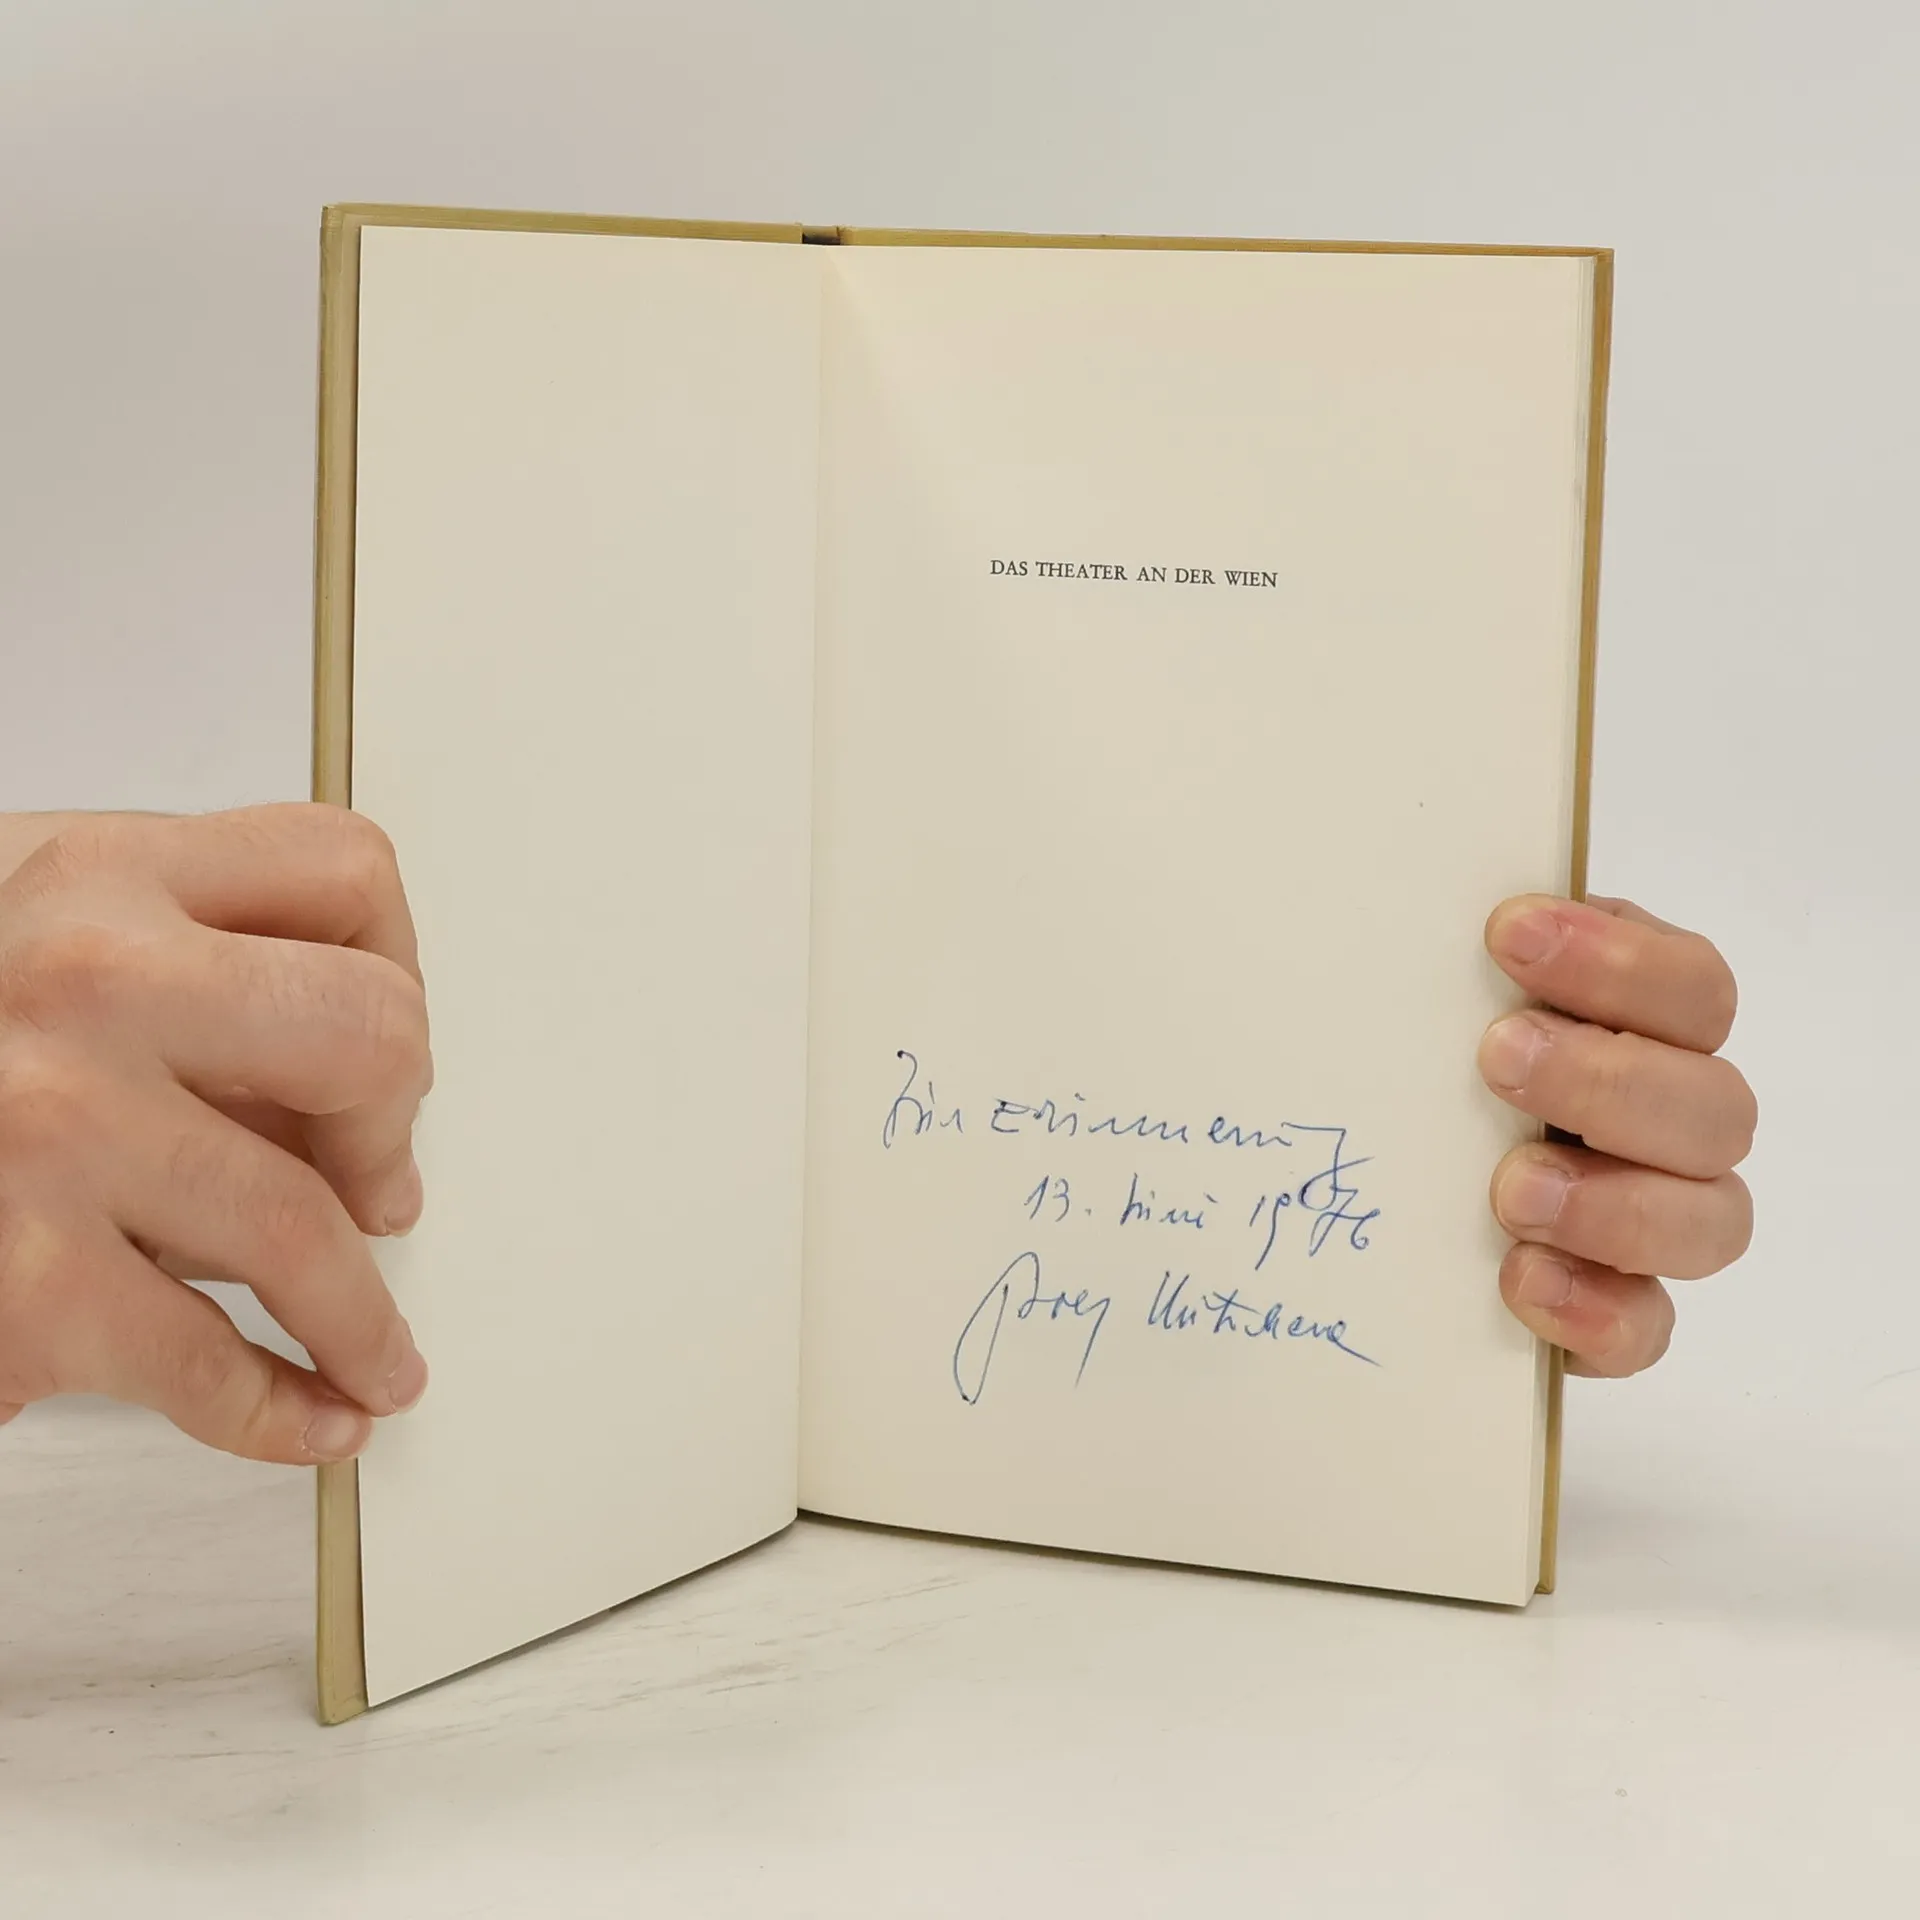 DAS THEATER AN DER WIEN
Zur Erinnerung
13. Juni 1976